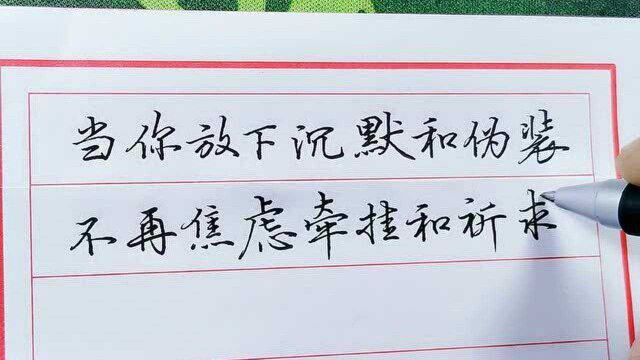 当你放下沉默和伪装
不再焦虑牵挂和祈求